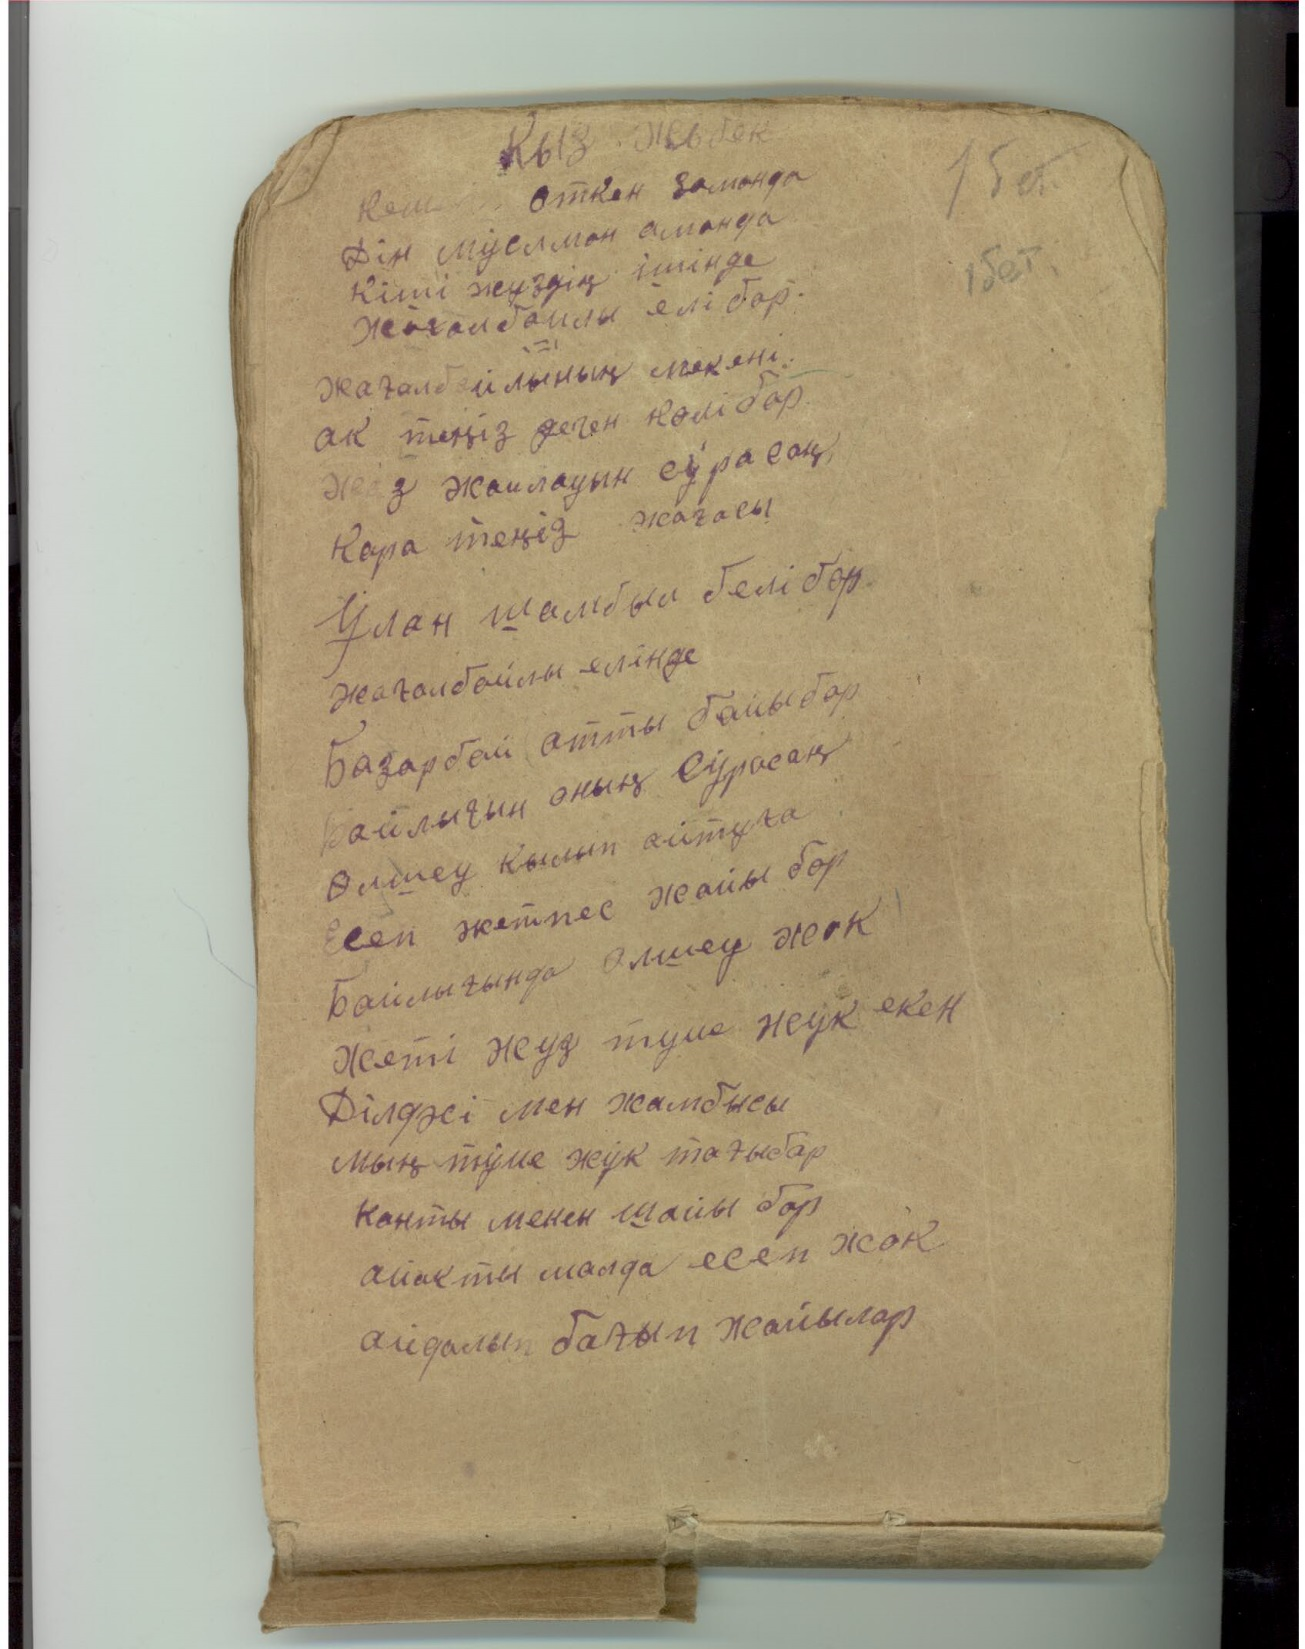 Кыз Жыбек
1 бет.
Кеш өткен заманда
1 бет.
Дін мүсілмон аманда
Кіші жүздің ішінде
Жағалбайлы елі бар.
жағалбайлының мекені.
ак теңіз деген көлі бар
жаз жаилауын сұрасаң,
Кара теңіз жағасы
Ұлан шамбыл белі бар.
жағалбайлы елінде
Базарбай атты байы бар
Байлығын оның сұрасаң
Өлшеу кылып айтуға
Есеп жетпес жайы бар
Байлығында өлшеу жок
Жеті жүз түие жүк екен
Ділдәсі мен жамбысы
мың түие жүк тағы бар
Канты менен шайы бар
аиакты малда есеп жок
аидалып бағып жайылар